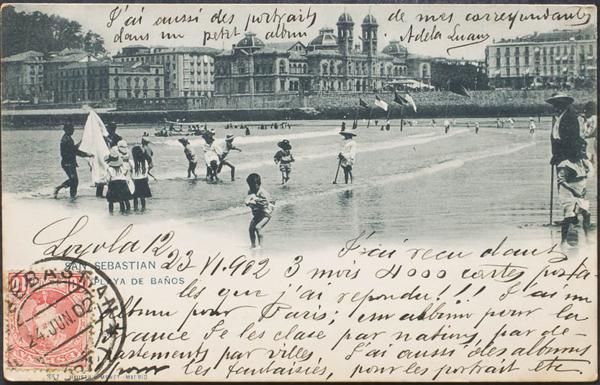 J'ai aussi des portraits de mes correspondants
dans un petit album Adela
Loyola 12
SAN SEBASTIAN
PLAYA DE BAÑOS
23 VI 902
J'ai reçu dans
3 mois 4000 cartes posta-
les que j'ai repondu!!! J'ai un
album pour Paris; un album pour la
France Je les clase par nations, par de-
partements par villes. J'ai aussi des albums
pour les fantaisies, pour les portrait etc.
SEBASTIAN
24 JUN 02